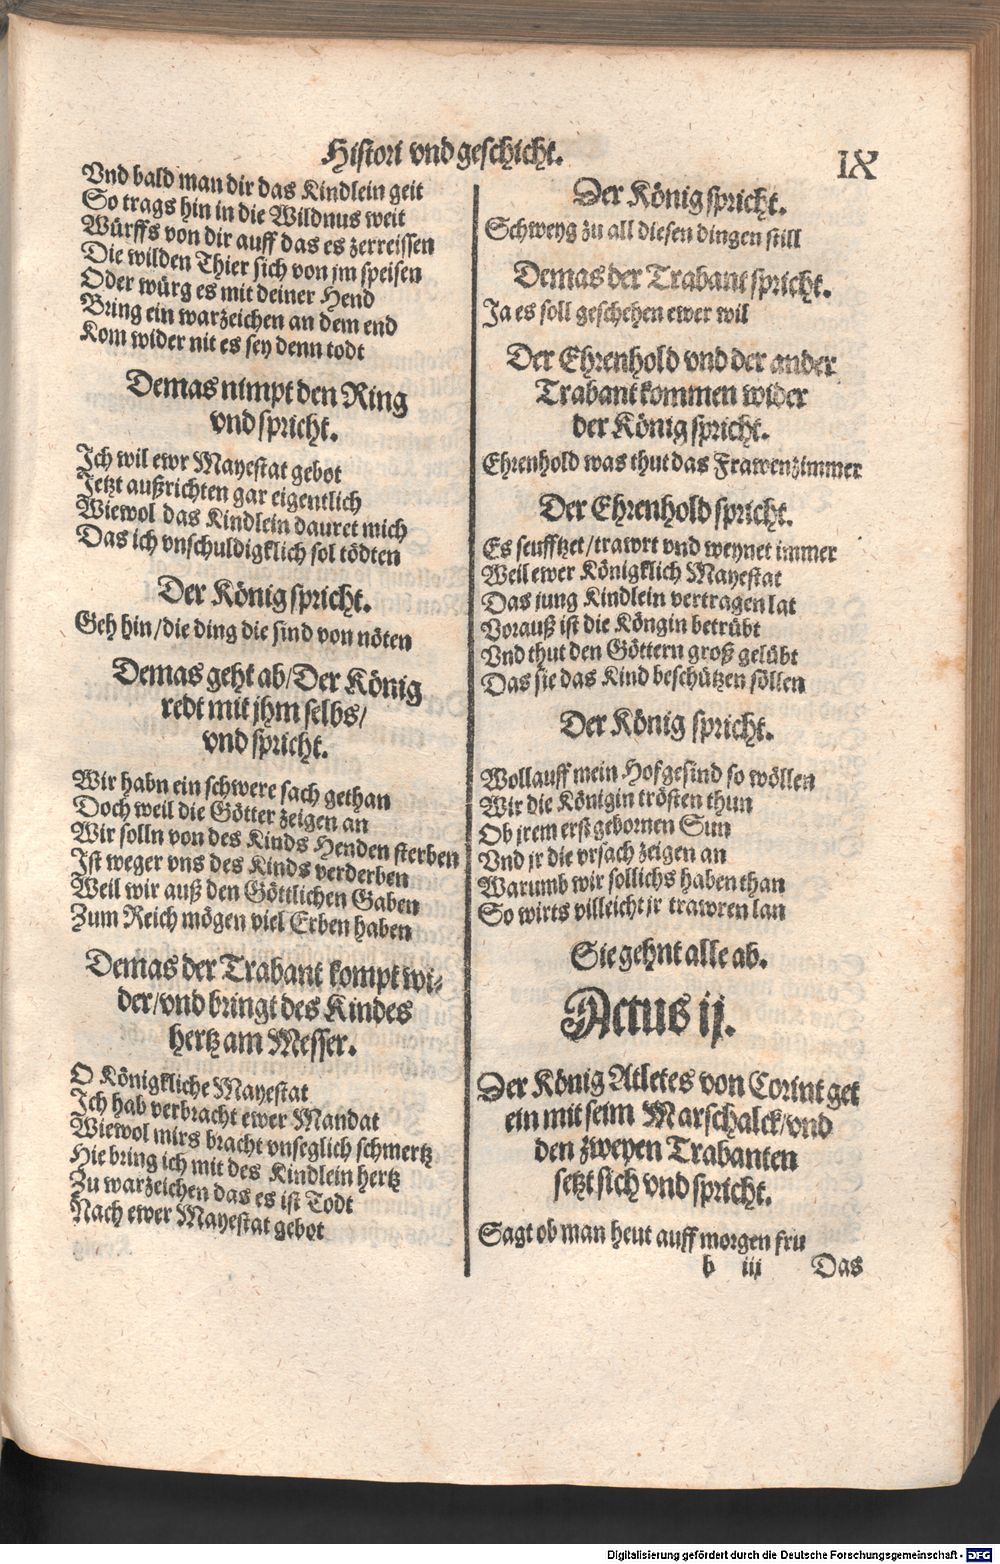 Histori vnd geschicht.
IX
Vnd bald man dir das Kindlein geit
So trags hin in die Wildnus weit
Würffs von dir auff das es zerreissen
Die wilden Thier sich von jm speisen
Oder würg es mit deiner Hend
Bring ein warzeichen an dem end
Kom wider nit es sey denn todt
Demas nimpt den Ring
vnd spricht.
Ich wil ewr Mayestat gebot
Jetzt außrichten gar eigentlich
Wiewol das Kindlein dauret mich
Das ich vnschuldigklich sol tödten
Der König spricht.
Geh hin/die ding die sind von nöten
Demas geht ab/Der König
redt mit jhm selbs/
vnd spricht.
Wir habn ein schwere sach gethan
Doch weil die Götter zeigen an
Wir solln von des Kinds Henden sterben
Ist weger vns des Kinds verderben
Weil wir auß den Göttlichen Gaben
Zum Reich mögen viel Erben haben
Demas der Trabant kompt wi-
der/vnd bringt des Kindes
hertz am Messer.
O Königkliche Mayestat
Ich hab verbracht ewer Mandat
Wiewol mirs bracht vnseglich schmertz
Hie bring ich mit des Kindlein hertz
Zu warzeichen das es ist Todt
Nach ewer Mayestat gebot
Der König spricht.
Schweyg zu all diesen dingen still
Demas der Trabant spricht.
Ja es soll geschehen ewer wil
Der Ehrenhold vnd der ander
Trabant kommen wider
der König spricht.
Ehrenhold was thut das Frawenzimmer
Der Ehrenhold spricht.
Es seufftzet/trawrt vnd weynet immer
Weil ewer Königklich Mayestat
Das jung Kindlein vertragen lat
Vorauß ist die Köngin betrübt
Vnd thut den Göttern groß gelübt
Das sie das Kind beschützen söllen
Der König spricht.
Wollauff mein Hofgesind so wöllen
Wir die Königin trösten thun
Ob jrem erst gebornen Sun
Vnd jr die vrsach zeigen an
Warumb wir sollichs haben than
So wirts villeicht jr trawren lan
Sie gehnt alle ab.
Actus ij.
Der König Atletes von Corint get
ein mit seim Marschalck/vnd
den zweyen Trabanten
setzt sich vnd spricht.
Sagt ob man heut auff morgen fru
b iii Das
Digitalisierung gefördert durch die Deutsche Forschungsgemeinschaft - DFG